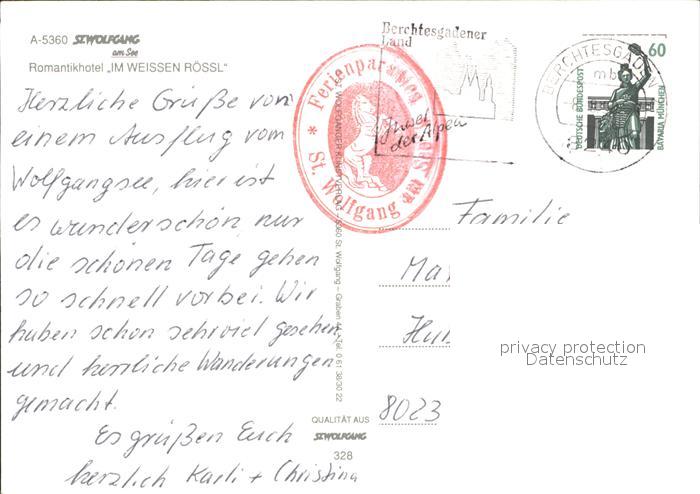 A-5360 ST. WOLFGANG
am See
Romantikhotel „IM WEISSEN RÖSSL"
Herzliche Grüße von
einem Ausflug vom
Wolfgangsee, hier ist
es wunderschön, nur
die schönen Tage gehen
so schnell vorbei. Wir
haben schon sehr viel gesehen
und herrliche Wanderungen
gemacht.
Es grüßen Euch
herzlich Karli + Christina
Ferienparadies
St. Wolfgang am See
WOLFGANGER KUNSTVERLAG · 5360 St. Wolfgang - Graben
QUALITÄT AUS
ST. WOLFGANG
328
Berchtesgadener
Land
Insel
der Alpen
BERCHTESGADEN
mb
60
DEUTSCHE BUNDESPOST
BAVARIA MÜNCHEN
Familie
8023
privacy protection
Datenschutz